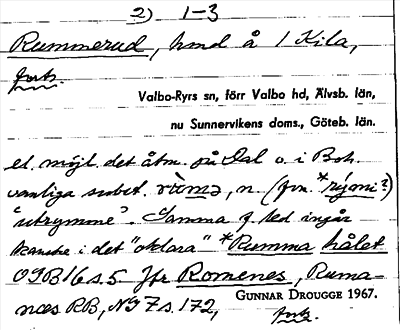 2) 1-3
Rummerud, hmd å 1 Kila,
forts.
Valbo-Ryrs sn, förr Valbo hd, Älvsb. län,
nu Sunnervikens doms., Göteb. län.
el. möjl. det åtm. på Dal o. i Boh.
vanliga subst. n. (fvn. *rými?)
"utrymme". Samma f. led ingår
kanske i det "oklara" *Rumma hålet
OGB 16 s. 5. Jfr Romenes, Ruma-
næs RB, NG 7 s. 172,
GUNNAR DROUGGE 1967.
forts.